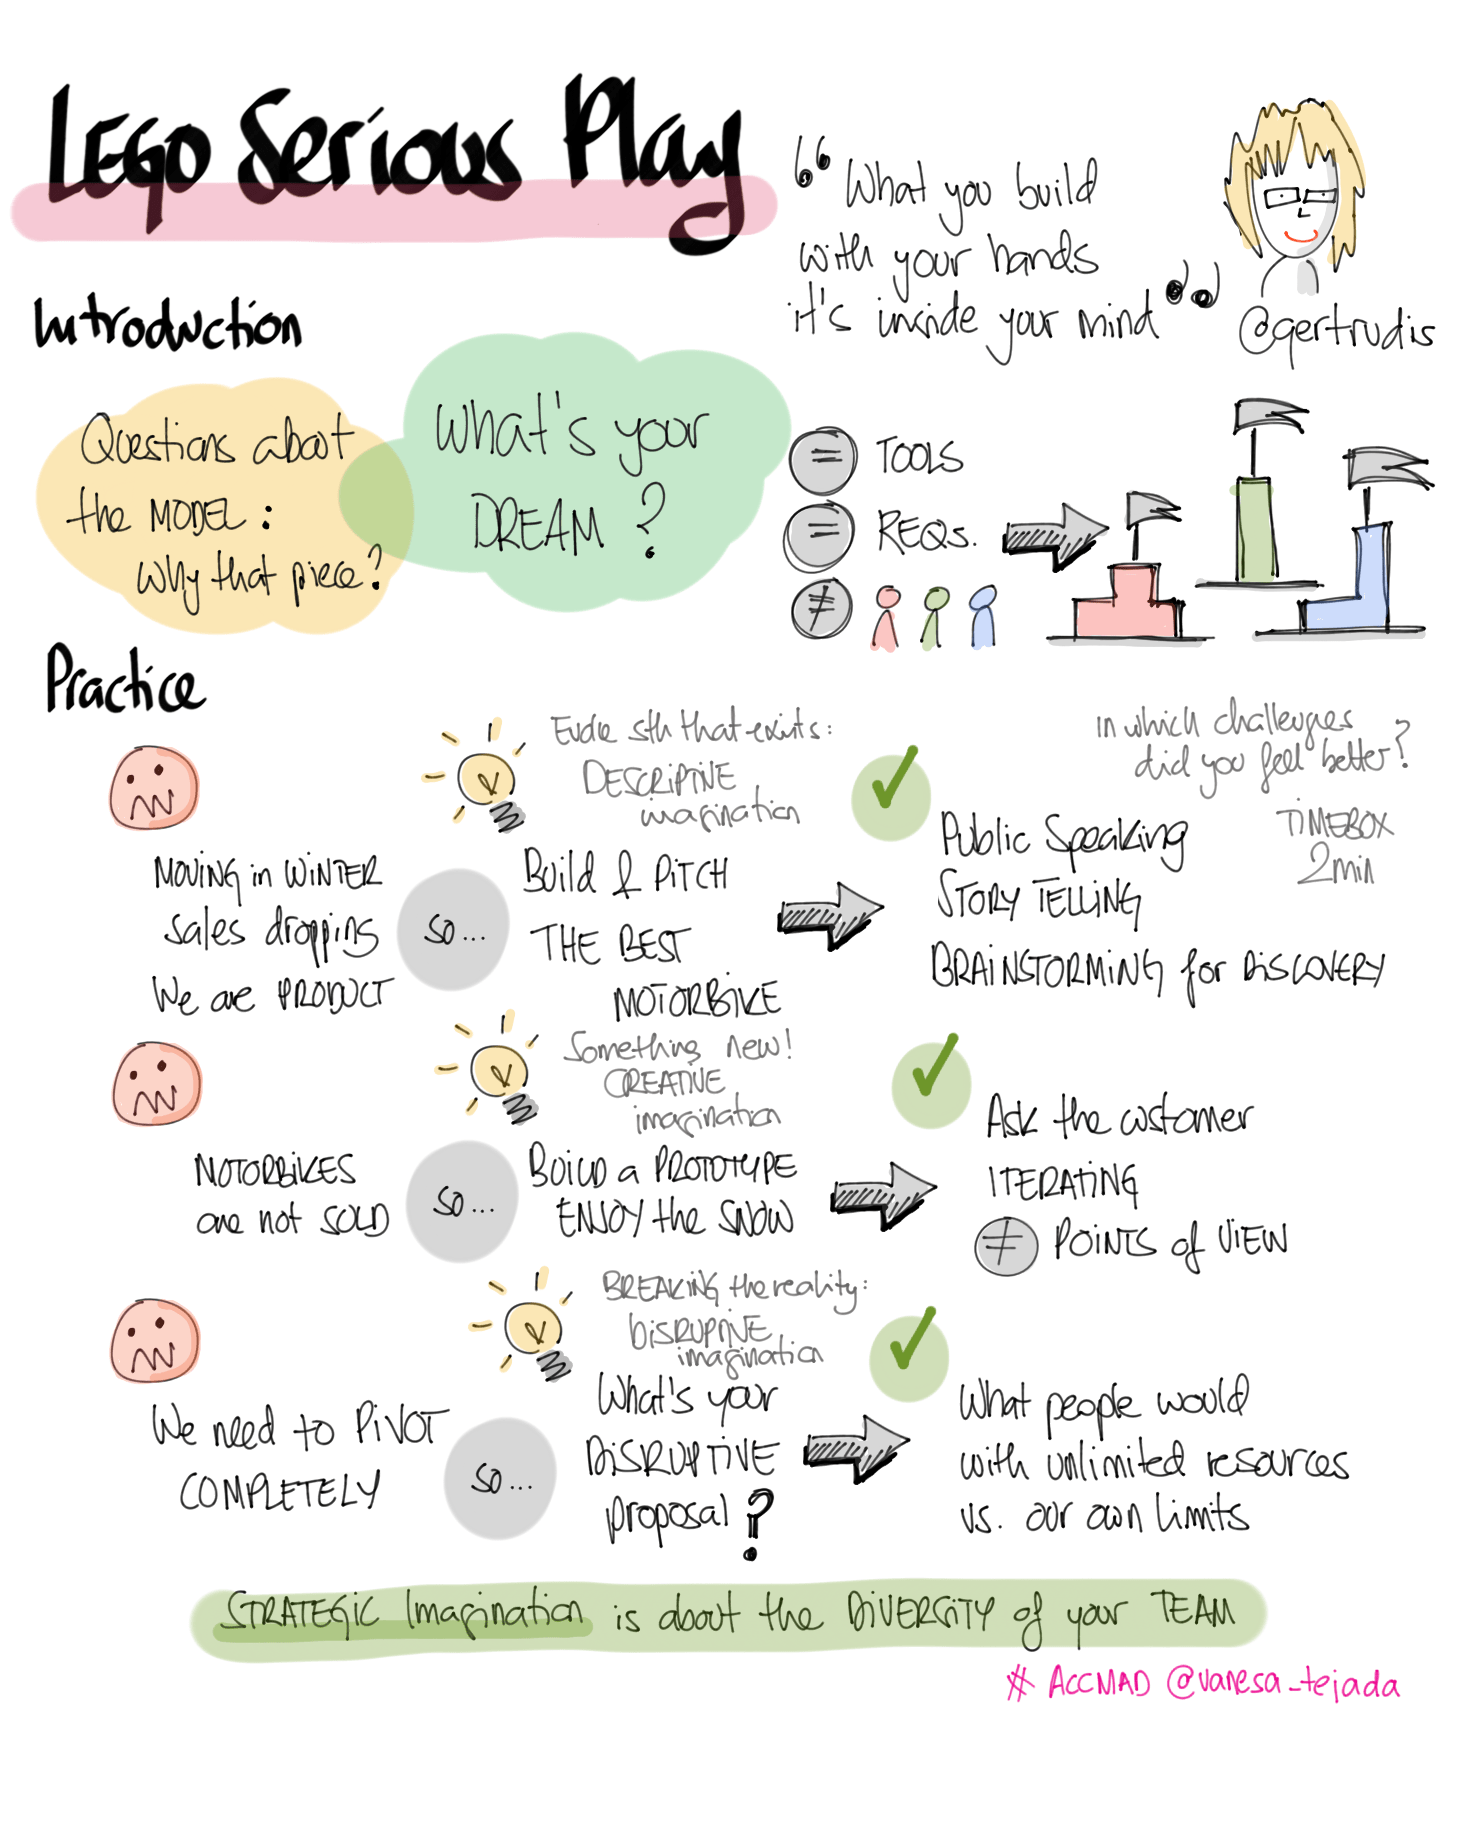 LEGO Serious Play
“ What you build
with your hands
it's inside your mind ”
@gertrudis
Introduction
Questions about
the MODEL:
Why that piece?
What's your
DREAM?
= TOOLS
= REQs.
≠
Practice
MOVING in WINTER
sales dropping
We are PRODUCT
so...
Evoke sth that exists:
DESCRIPTIVE
imagination
Build & PITCH
THE BEST
MOTORBIKE
In which challenges
did you feel better?
TIMEBOX
2min
Public Speaking
STORY TELLING
BRAINSTORMING for DISCOVERY
MOTORBIKES
are not SOLD
so...
Something new!
CREATIVE
imagination
BUILD a PROTOTYPE
ENJOY the SNOW
Ask the customer
ITERATING
≠ POINTS of VIEW
We need to PIVOT
COMPLETELY
so...
BREAKING the reality:
DISRUPTIVE
imagination
What's your
DISRUPTIVE
proposal?
What people would
with unlimited resources
vs. our own limits
STRATEGIC Imagination is about the DIVERSITY of your TEAM
# ACCMAD @vanesa_tejada